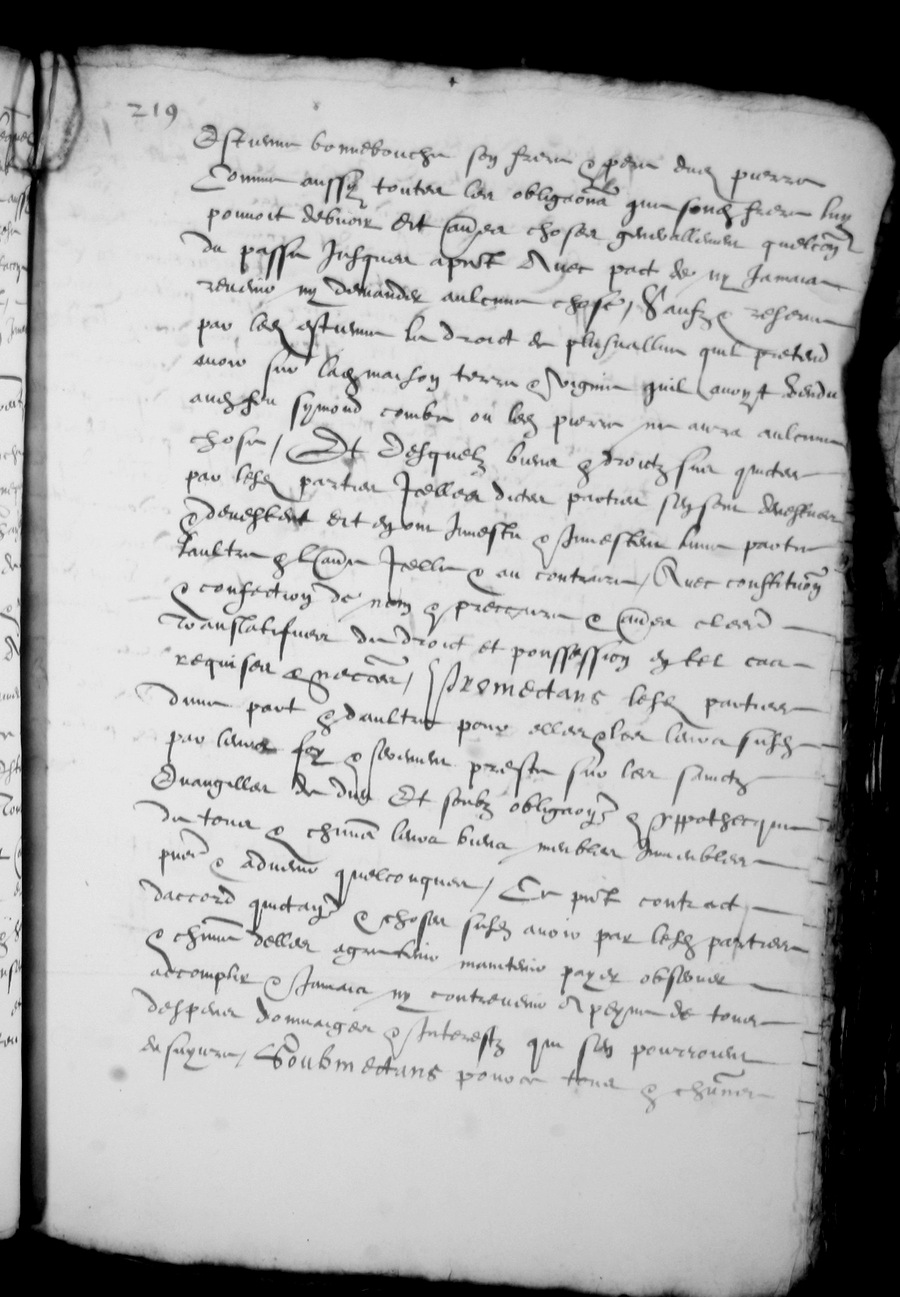 219
Estienne bonnebouche son frere & pere dud pierre
Comme aussy toutes les obligaons que sond frere luy
pouuoit debuoir Et aues choses generallement quelcon
du passe Jusques a pnt Auec pact de ny Jamais
reuenir ny demander aulcune chose / Sauf & reserue
par led estienne le droict de plusuallue quil pretend
auoir sur lad maison terre & vigne quil auoyt vendu
aud feu symond combe ou led pierre ne aura aulcune
chose / Et desquelz biens & droictz sus quictes
par lesd parties Jcelles dictes parties sen sont deuestues
& deuestent Et en ont Inuestu & Inuestent lune partie
laultre & laue Jcelle & au contraire / Auec constituon
& confection de nom & precaire & aues clees
Translatifues du droict et poussession en tel cas
requises & neccere / Promectans lesd parties
dune part & daultre pour elles & les leurs susd
par leurs foy & serement preste sur les sainctz
Euangilles de dieu Et soubz obligaon & yppothecque
de tous & chuns leurs biens meubles Immeubles
pns & aduenir quelconques / Ce pnt contract
daccord quictan & choses susd auoir par lesd parties
& chune delles agreable maintenir payer obseruer
accomplir & Jamais ny contreuenir A peyne de tous
despens dommaiges & Interestz qui sen pourroient
ensuyure / Soubmectans pource tous & chuns